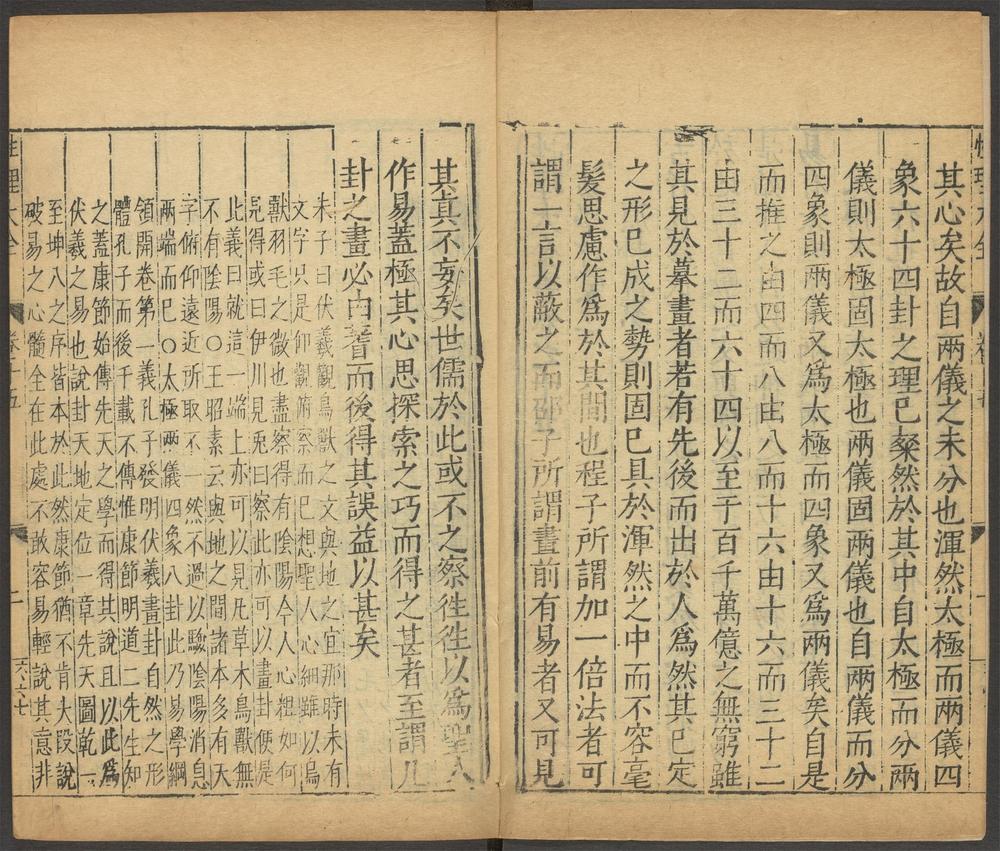 其心矣故自兩儀之未分也渾然太極而兩儀四
象六十四卦之理已粲然於其中自太極而分兩
儀則太極固太極也兩儀固兩儀也自兩儀而分
四象則兩儀又爲太極而四象又爲兩儀矣自是
而推之由四而八由八而十六由十六而三十二
由三十二而六十四以至于百千萬億之無窮雖
其見於摹畫者若有先後而出於人爲然其已定
之形已成之勢則固已具於渾然之中而不容毫
髮思慮作爲於其間也程子所謂加一倍法者可
謂一言以蔽之而邵子所謂畫前有易者又可見
其真不妄矣世儒於此或不之察徃徃以爲聖人
作易蓋極其心思探索之巧而得之甚者至謂凡
卦之畫必由蓍而後得其誤益以甚矣
朱子曰伏羲觀鳥獸之文與地之宜那時未有
文字只是仰觀俯察而已想聖人心細雖以鳥
獸羽毛之微也盡察得有陰陽今人心粗如何
見得或曰伊川見兎曰察此亦可以畫卦便是
此義曰就這一端上亦可以見凡草木鳥獸無
不有陰陽○王昭素云與地之間諸本多有天
字俯仰遠近所取不一然不過以驗陰陽消息
兩端而已○太極兩儀四象八卦此乃易學綱
領開卷第一義孔子發明伏羲畫卦自然之形
體孔子而後千載不傳惟康節明道二先生知
之蓋康節始傳先天之學而得其說且以此爲
伏羲之易也說卦天地定位一章先天圖乾一
至坤八之序皆本於此然康節猶不肯大段說
破易之心髓全在此處不敢容易輕說其意非
性理大全
卷十五
二
六六七